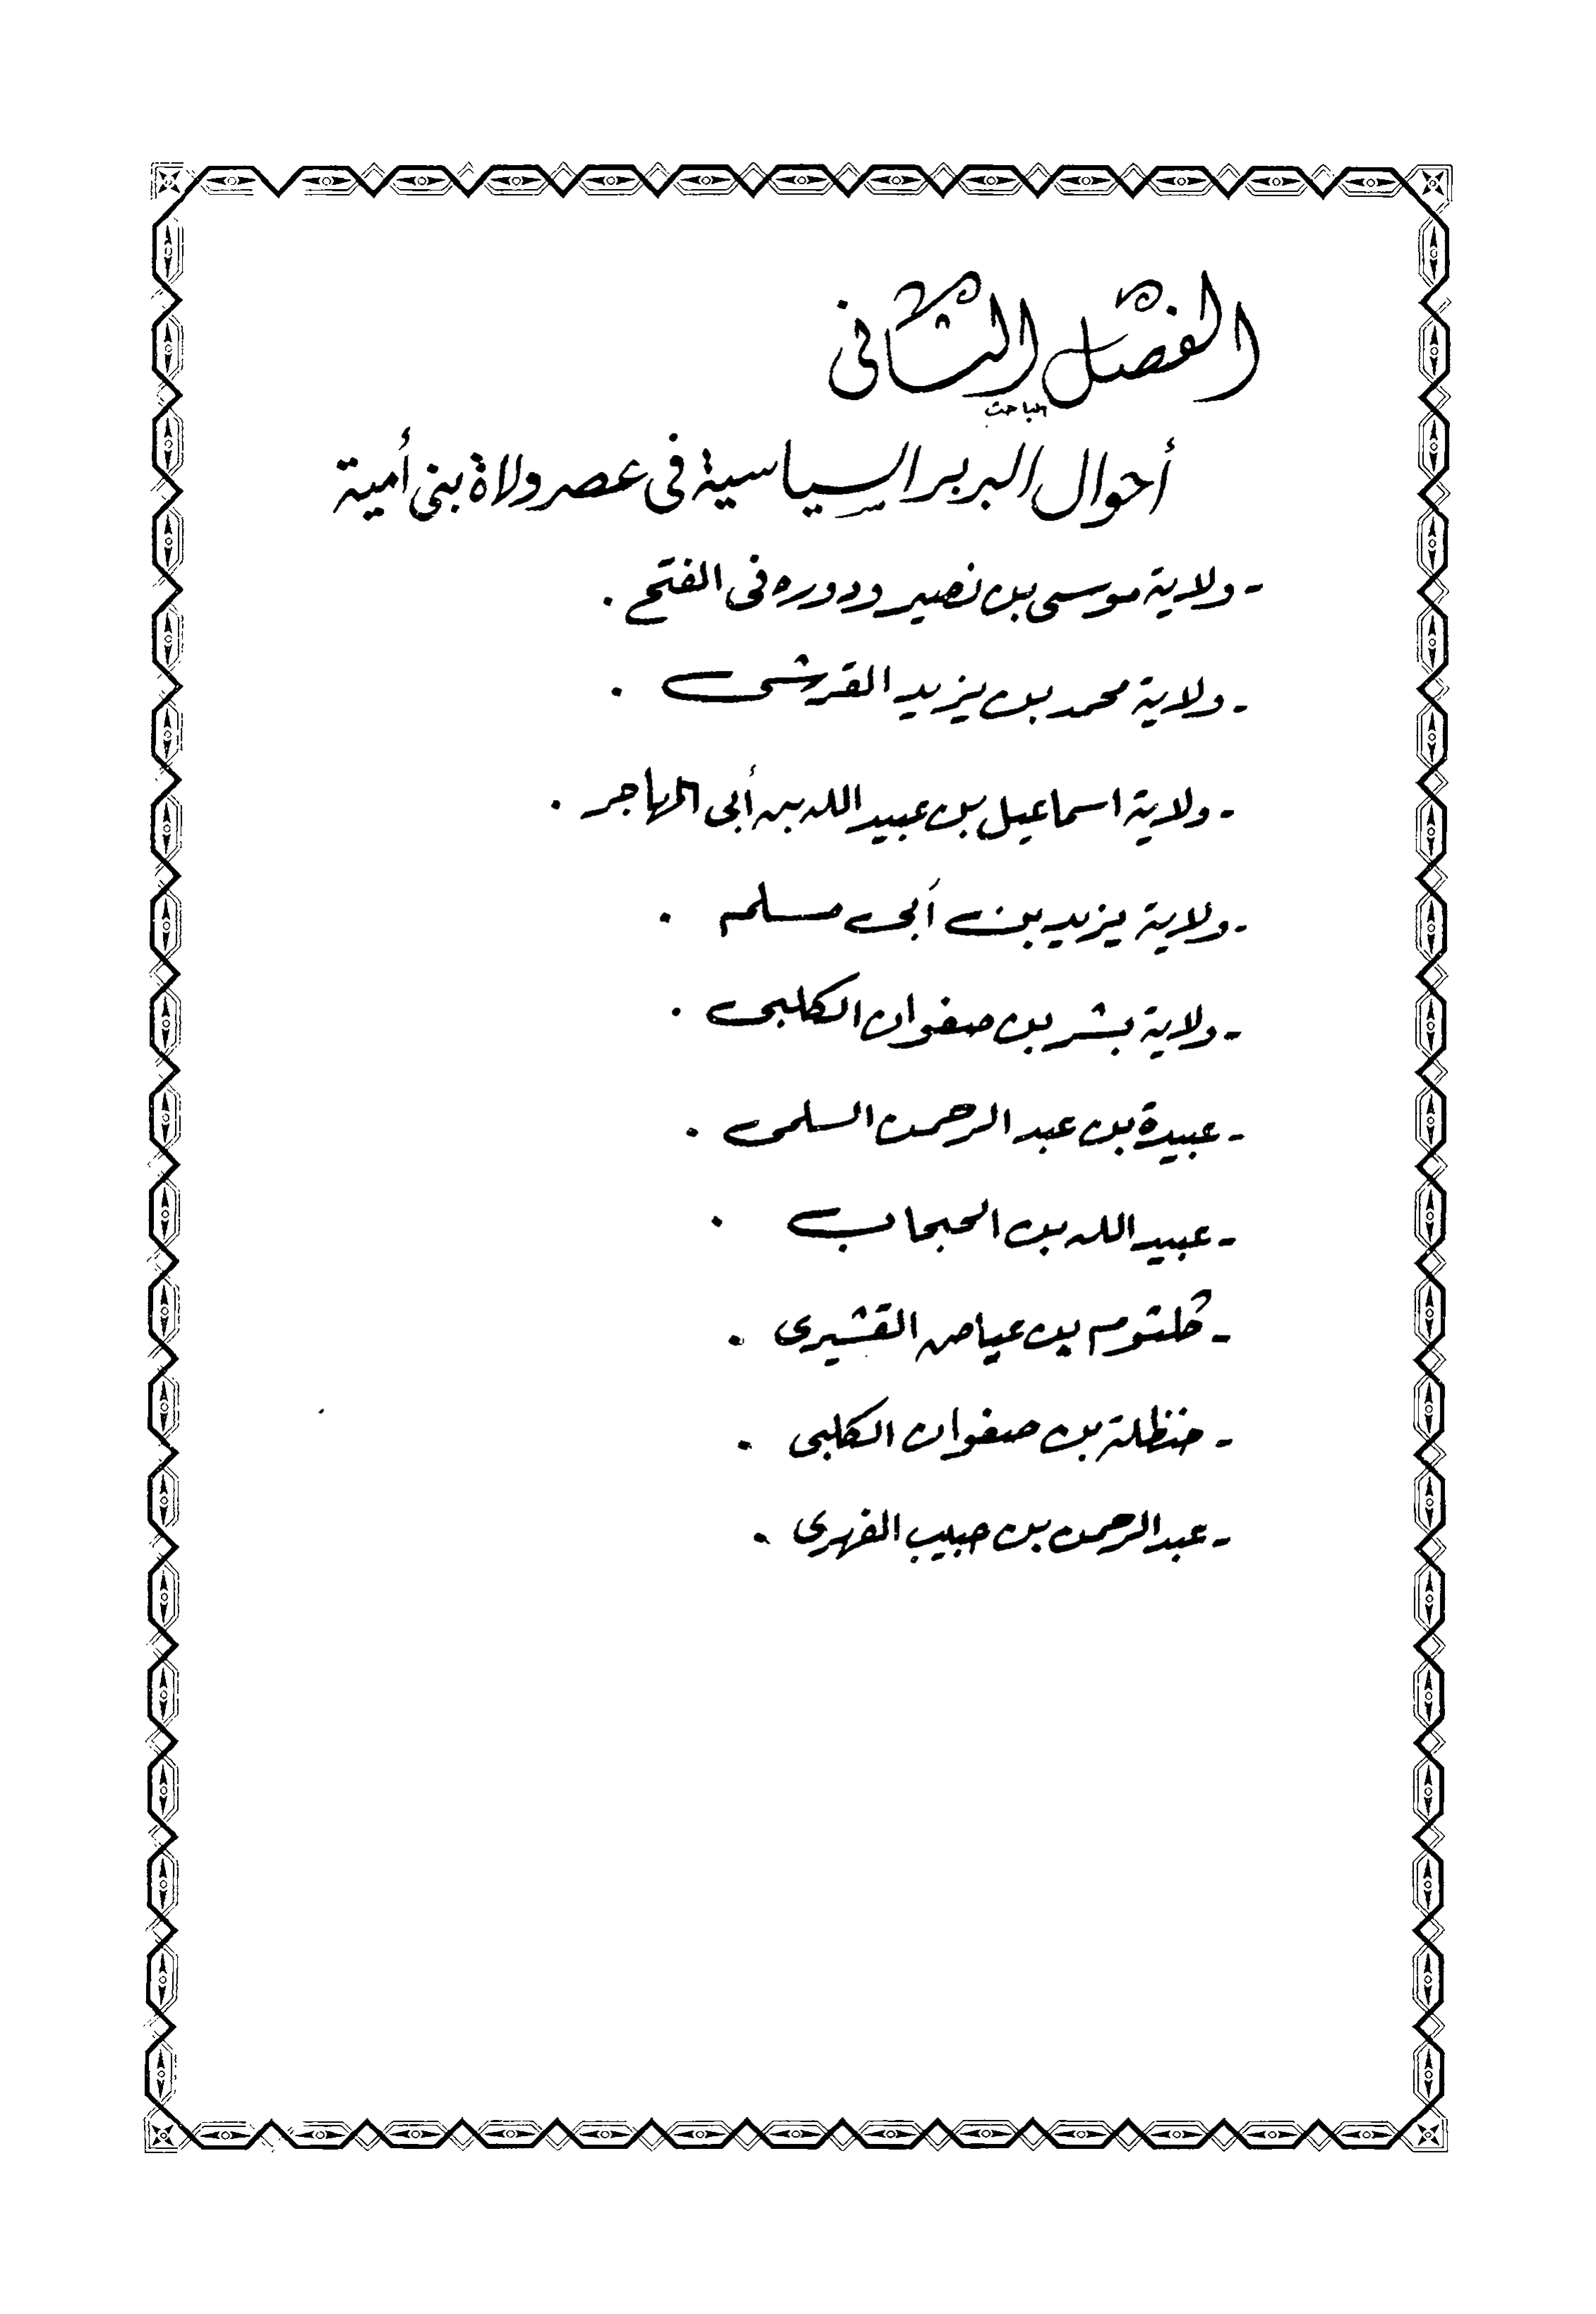 الفصل الثانى
الباحث
أحوال البربر السياسية فى عصر ولاة بنى أمية
- ولاية موسى بن نصير ودوره فى الفتح .
- ولاية محمد بن يزيد القرشى .
- ولاية اسماعيل بن عبيد الله بن أبى المهاجر .
- ولاية يزيد بن أبى مسلم .
- ولاية بشر بن صفوان الكلبى .
- عبيدة بن عبد الرحمن السلمى .
- عبيد الله بن الحبحاب .
- كلثوم بن عياض القشيرى .
- حنظلة بن صفوان الكلبى .
- عبد الرحمن بن حبيب الفهرى .